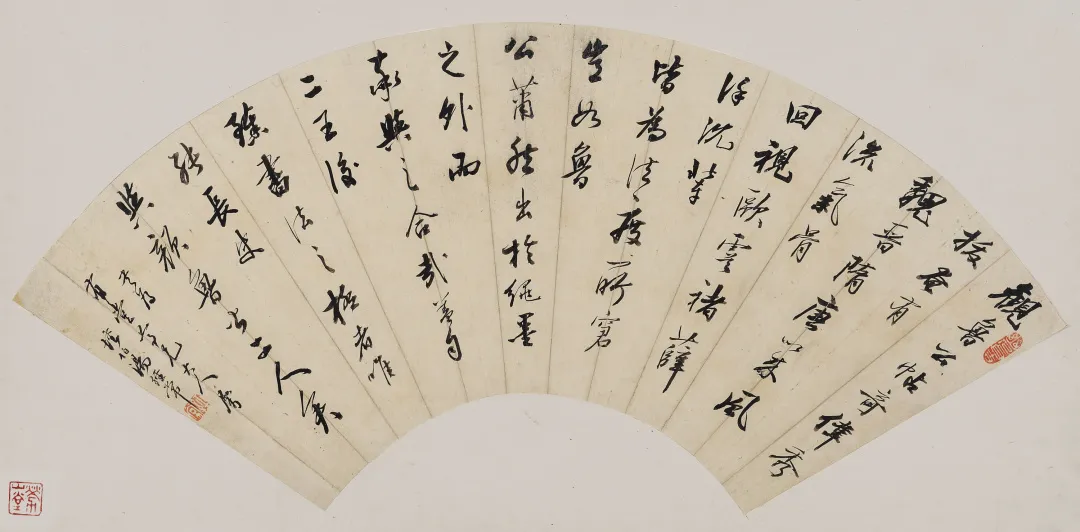 觀魯公帖奇偉秀
拔奄有
魏晉隋唐以來風
流氣骨
回視歐虞褚薛
徐沈輩
皆為法度所窘
豈如魯
公蕭然出於繩墨
之外而
卒與之合哉蓋自
二王後
臻書法之極者唯
張長史
與顏魯公二人矣
六兄大人屬